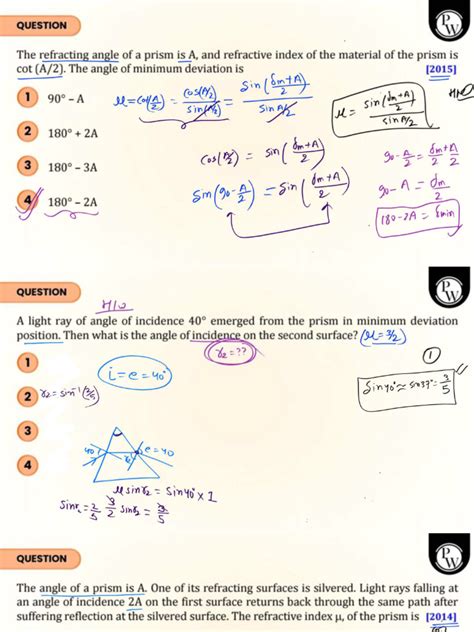 QUESTION
PW
The refracting angle of a prism is A, and refractive index of the material of the prism is
cot (A/2). The angle of minimum deviation is [2015]
1 90° – A
μ = cot(A/2) = cos(A/2) / sin(A/2) = sin((δm+A)/2) / sin A/2
μ = sin((δm+A)/2) / sin A/2
2 180° + 2A
cos(A/2) = sin((δm+A)/2)
90 - A/2 = (δm+A)/2
3 180° – 3A
sin(90 - A/2) = sin((δm+A)/2)
90 - A = δm/2
4 180° – 2A
180 - 2A = δmin
QUESTION
PW
H/W
A light ray of angle of incidence 40° emerged from the prism in minimum deviation
position. Then what is the angle of incidence on the second surface? (μ = 3/2)
r2 = ??
1
i = e = 40°
①
sin40° ≈ sin37° = 3/5
2 r2 = sin⁻¹(2/5)
3
40° r2 e = 40
4
μ sin r2 = sin40° × 1
sin r2 = 2/5 3/2 sin r2 = 3/5
QUESTION
PW
The angle of a prism is A. One of its refracting surfaces is silvered. Light rays falling at
an angle of incidence 2A on the first surface returns back through the same path after
suffering reflection at the silvered surface. The refractive index μ, of the prism is [2014]